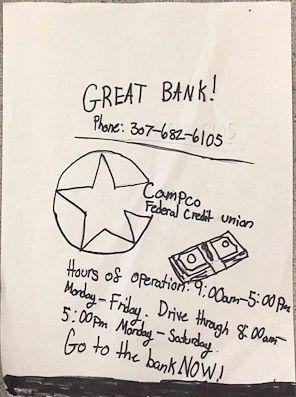 GREAT BANK!
Phone: 307-682-6105
Campco
Federal Credit union
Hours of operation: 9:00am-5:00pm
Monday - Friday. Drive through 8:00am-
5:00pm Monday - Saturday.
Go to the bank NOW!